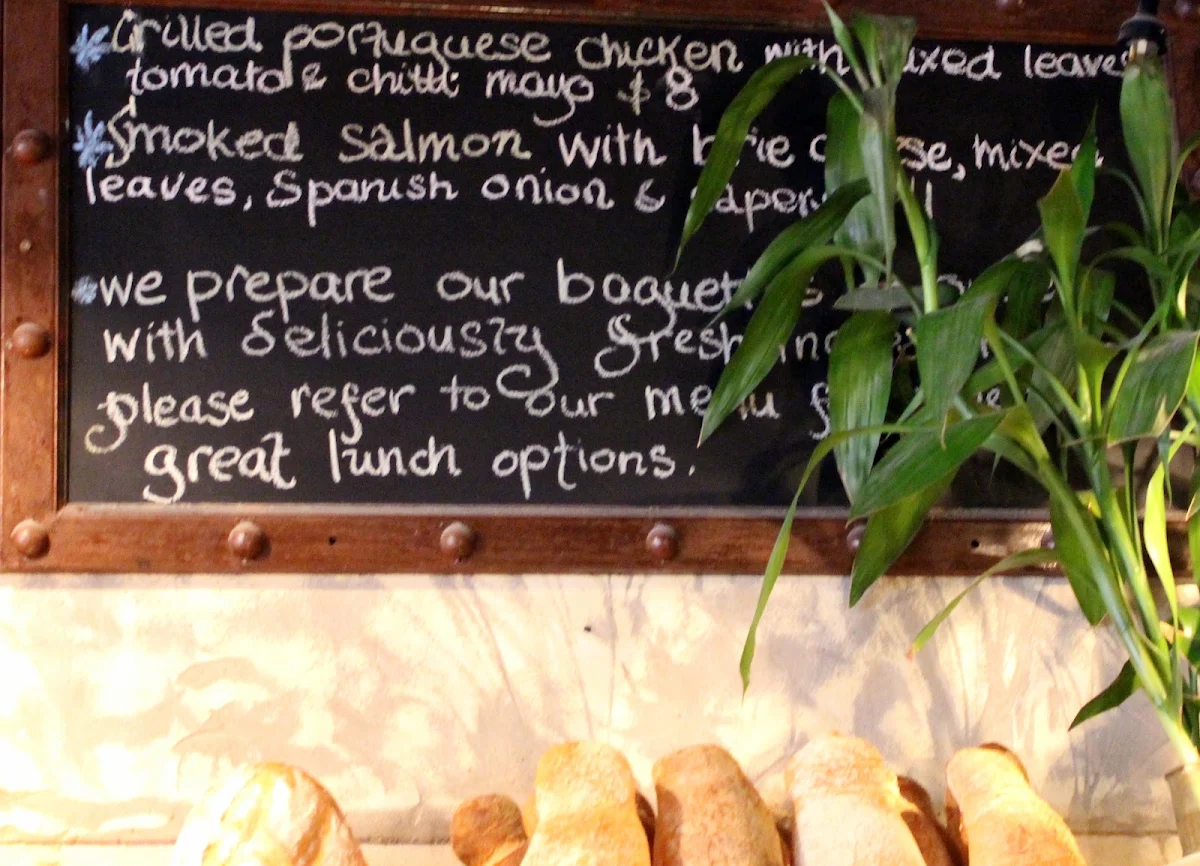 Grilled portuguese chicken with mixed leaves
tomato & chilli mayo $8
Smoked Salmon with brie cheese, mixed
leaves, Spanish onion &
we prepare our baguettes
with deliciously fresh
please refer to our menu
great lunch options.